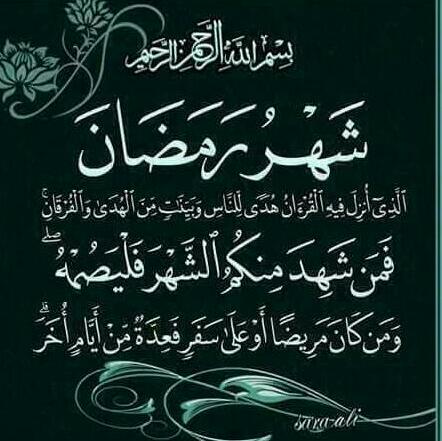 بِسْمِ اللَّهِ الرَّحْمَٰنِ الرَّحِيمِ
شَهْرُ رَمَضَانَ
الَّذِىٓ أُنزِلَ فِيهِ الْقُرْءَانُ هُدًى لِّلنَّاسِ وَبَيِّنَٰتٍ مِّنَ الْهُدَىٰ وَالْفُرْقَانِ ۚ
فَمَن شَهِدَ مِنكُمُ الشَّهْرَ فَلْيَصُمْهُ ۖ
وَمَن كَانَ مَرِيضًا أَوْ عَلَىٰ سَفَرٍ فَعِدَّةٌ مِّنْ أَيَّامٍ أُخَرَ ۗ
sara-ali